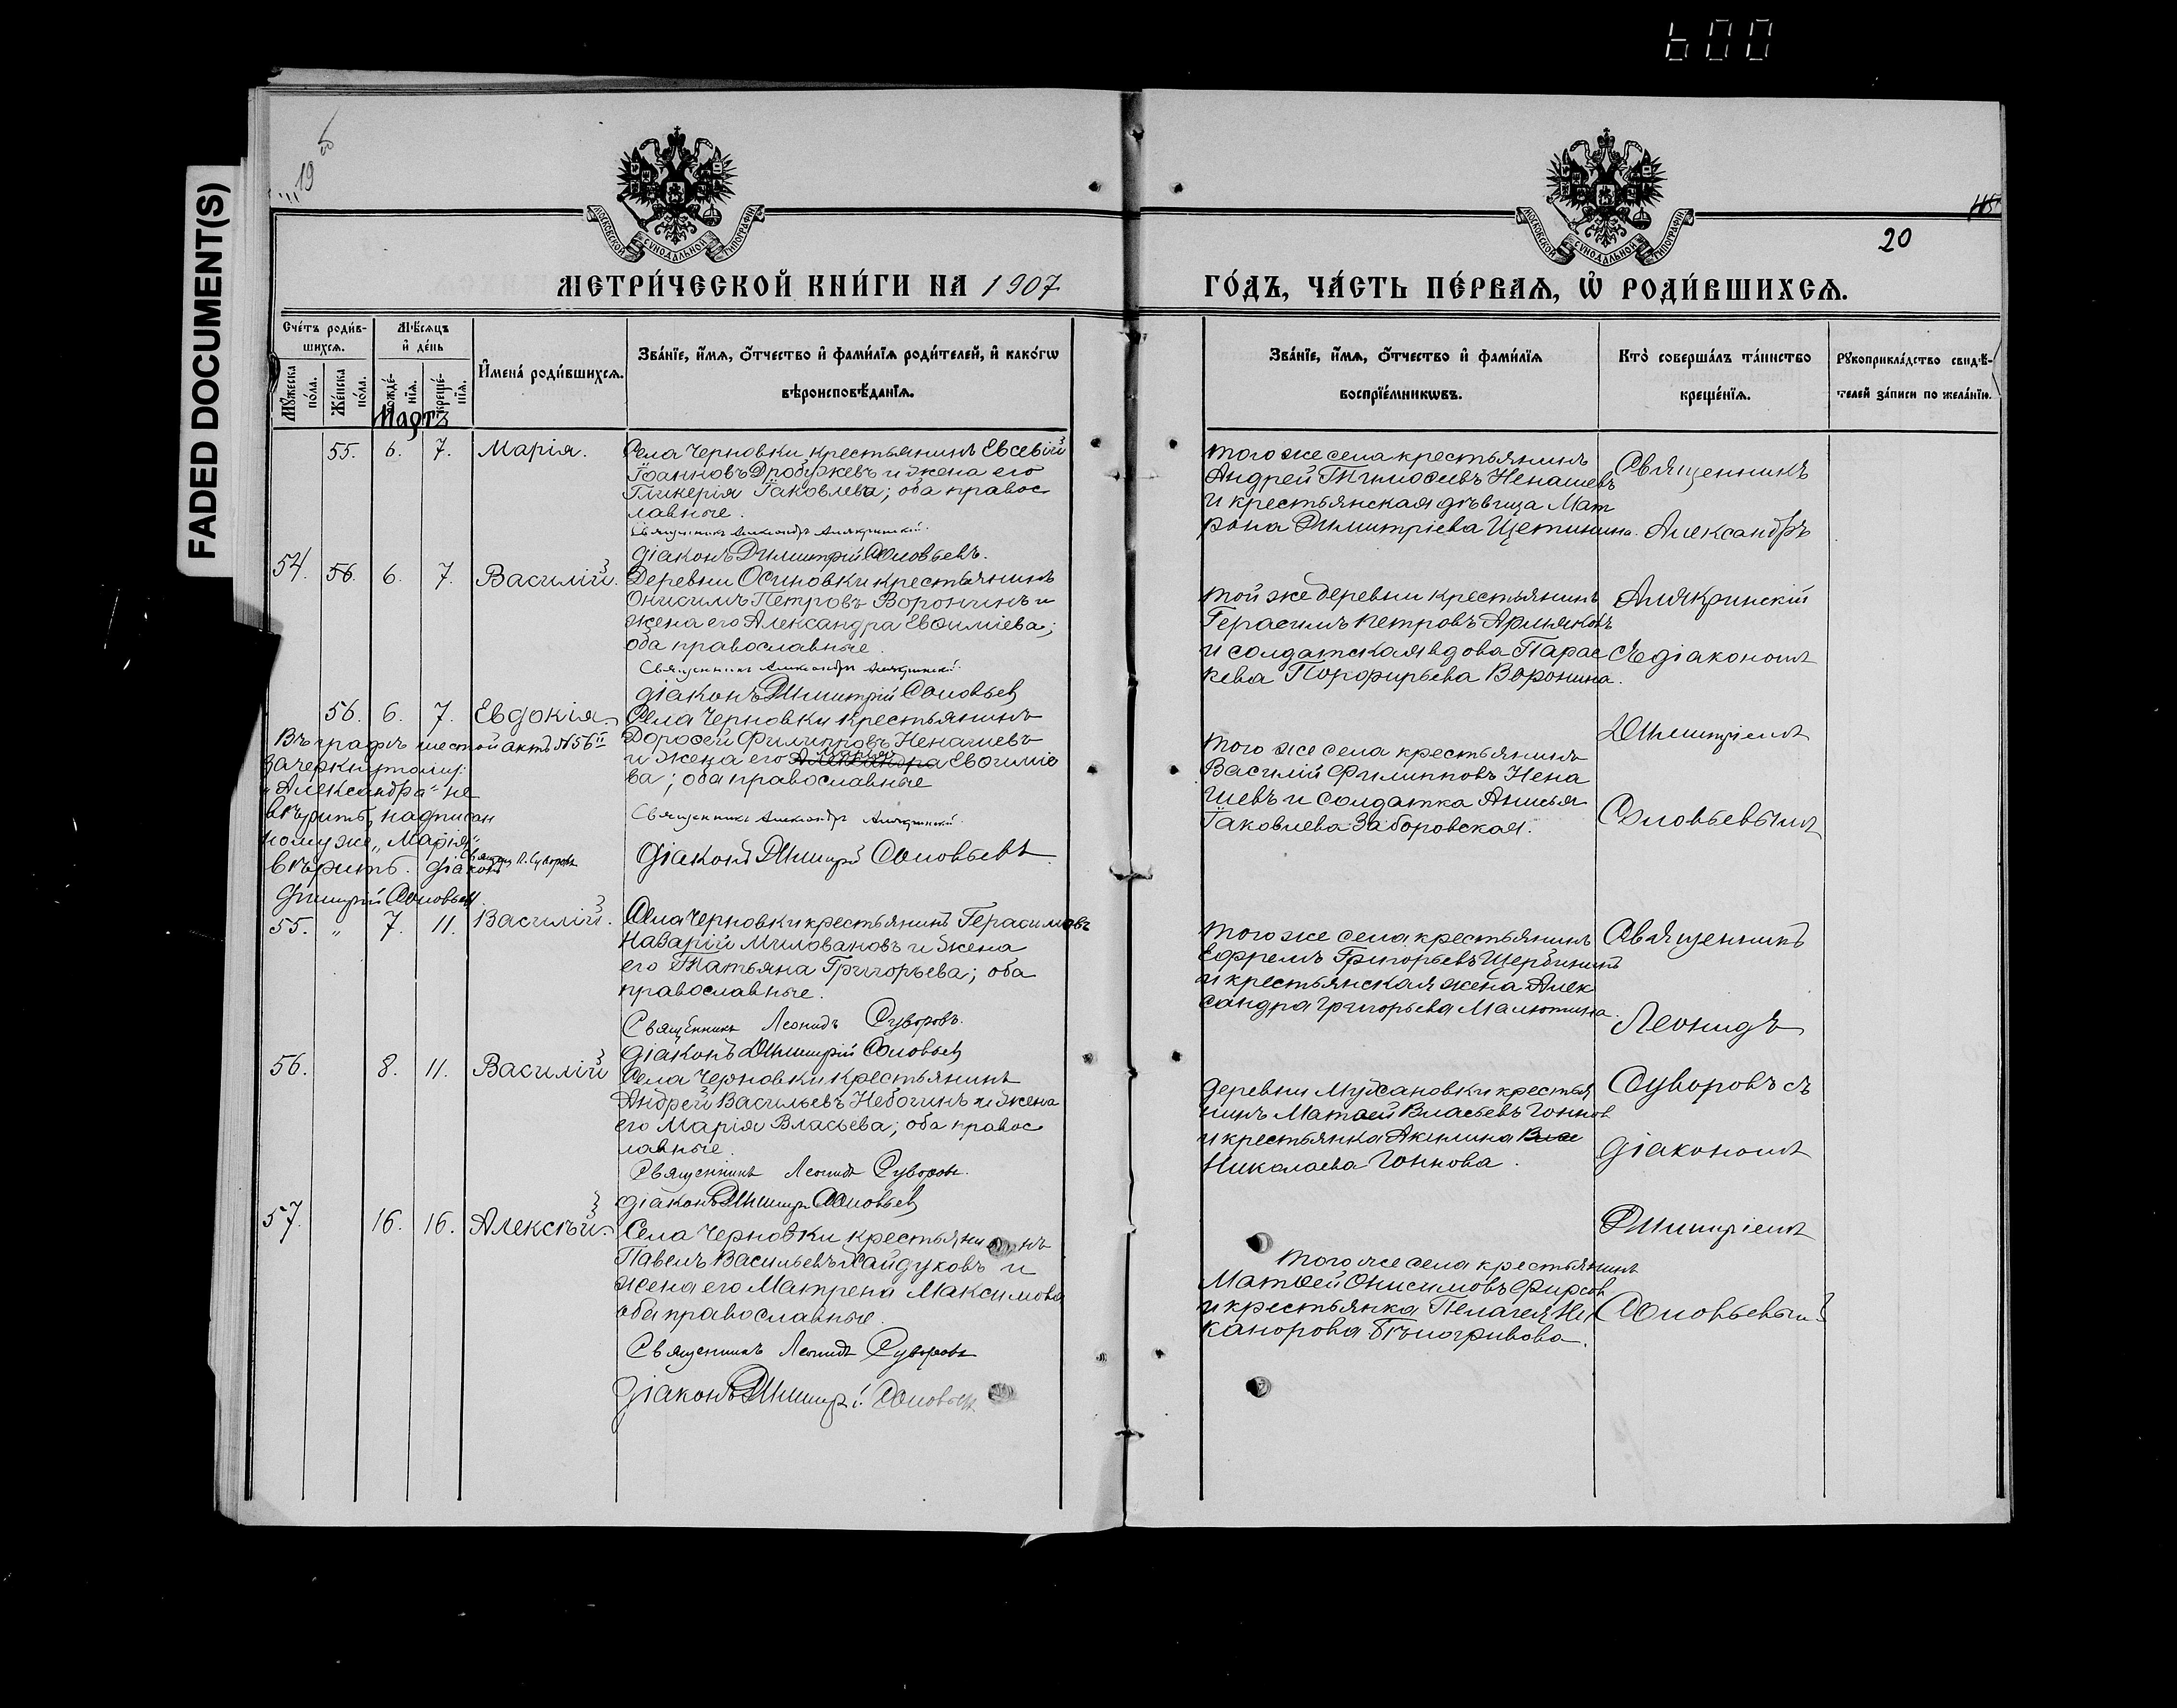 600
FADED DOCUMENT(S)
МОСКОВСКОЙ СѴНОДАЛЬНОЙ ТИПОГРАФІИ
МОСКОВСКОЙ СѴНОДАЛЬНОЙ ТИПОГРАФІИ
20
МЕТРИ́ЧЕСКОЙ КНИ́ГИ НА 1907
ГО́ДЪ, ЧА́СТЬ ПЕ́РВАѦ, Ѡ҆ РОДИ́ВШИХСѦ.
Сче́тъ роди́в-
шихсѧ.
Мꙋ́жеска по́ла.
Же́нска по́ла.
Мѣ́сѧцъ
и҆ де́нь
рожде́-
нїѧ.
креще́-
нїѧ.
И҆мена̀ роди́вшихсѧ.
Зва́нїе, и҆́мѧ, ѻ҆́тчество и҆ фами́лїѧ роди́телей, и҆ како́гѡ
вѣроисповѣ́данїѧ.
Зва́нїе, и҆́мѧ, ѻ҆́тчество и҆ фами́лїѧ
воспрїе́мникѡвъ.
Кто̀ соверша́лъ та́инство
креще́нїѧ.
Рꙋкоприкла́дство свидѣ́-
телей за́писи по жела́нїю.
Мартъ
55. 6. 7. Марія. Села Черновки крестьянинъ Евсевій
Іоанновъ Дробужевъ и жена его
Гликерія Іаковлева; оба правос
лавные.
Священникъ Александръ Алякринскій.
Діаконъ Димитрій Соловьевъ.
того же села крестьянинъ
Андрей Тимоѳеевъ Ненашевъ
и крестьянская дѣвица Мат
рона Димитріева Щетинина.
Священникъ
Александръ
54. 56. 6. 7. Василій. Деревни Осиновки крестьянинъ
Онисимъ Петровъ Воронинъ и
жена его Александра Евѳиміева;
оба православные.
Священникъ Александръ Алякринскій.
Діаконъ Димитрій Соловьев
той же деревни крестьянинъ
Герасимъ Петровъ Армяковъ
и солдатская вдова Парас
кева Порфирьева Воронина.
Алякринскій
съ діакономъ
56. 6. 7. Евдокія. Села Черновки крестьянинъ
Дороѳей Филипповъ Ненашевъ
Марія
и жена его Александра Евѳиміе
ва; оба православные
Священникъ Александръ Алякринскій.
Діаконъ Димитрій Соловьевъ
Въ графѣ шестой акта №56й
зачеркнутому:
„Александра" не
вѣрить, надписан
ному же „Марія"
вѣрить. Діаконъ
Священ. Л. Суворовъ
Димитрій Соловьевъ
того же села крестьянинъ
Василій Филипповъ Нена
шевъ и солдатка Анисья
Іаковлева Заборовская.
Димитріемъ
Соловьевымъ
55. „ 7. 11. Василій. Села Черновки крестьянинъ Герасимовъ
Назарій Миловановъ и жена
его Татьяна Григорьева; оба
православные.
Священникъ Леонидъ Суворовъ.
Діаконъ Димитрій Соловьев
того же села крестьянинъ
Ефремъ Григорьевъ Щербининъ
и крестьянская жена Алек
сандра Григорьева Малютина.
Священникъ
Леонидъ
56. 8. 11. Василій Села Черновки крестьянинъ
Андрей Васильевъ Небогинъ и жена
его Марія Власьева; оба правос
лавные.
Священникъ Леонидъ Суворовъ.
Діаконъ Димитр Соловьев
деревни Мухановки крестья
нинъ Матѳей Власьевъ Гоннов
и крестьянка Акилина Влас
Николаева Гоннова.
Суворовъ съ
діакономъ
57. 16. 16. Алексѣй. Села Черновки крестьянинъ
Павелъ Васильевъ Хайдуковъ и
жена его Матрена Максимова
оба православные.
Священникъ Леонидъ Суворовъ
Діаконъ Димитрі Соловьевъ
того же села крестьянинъ
Матѳей Онисимовъ Фирсов
и крестьянка Пелагея Ни
канорова Бѣлогривова.
Димитріемъ
Соловьевым